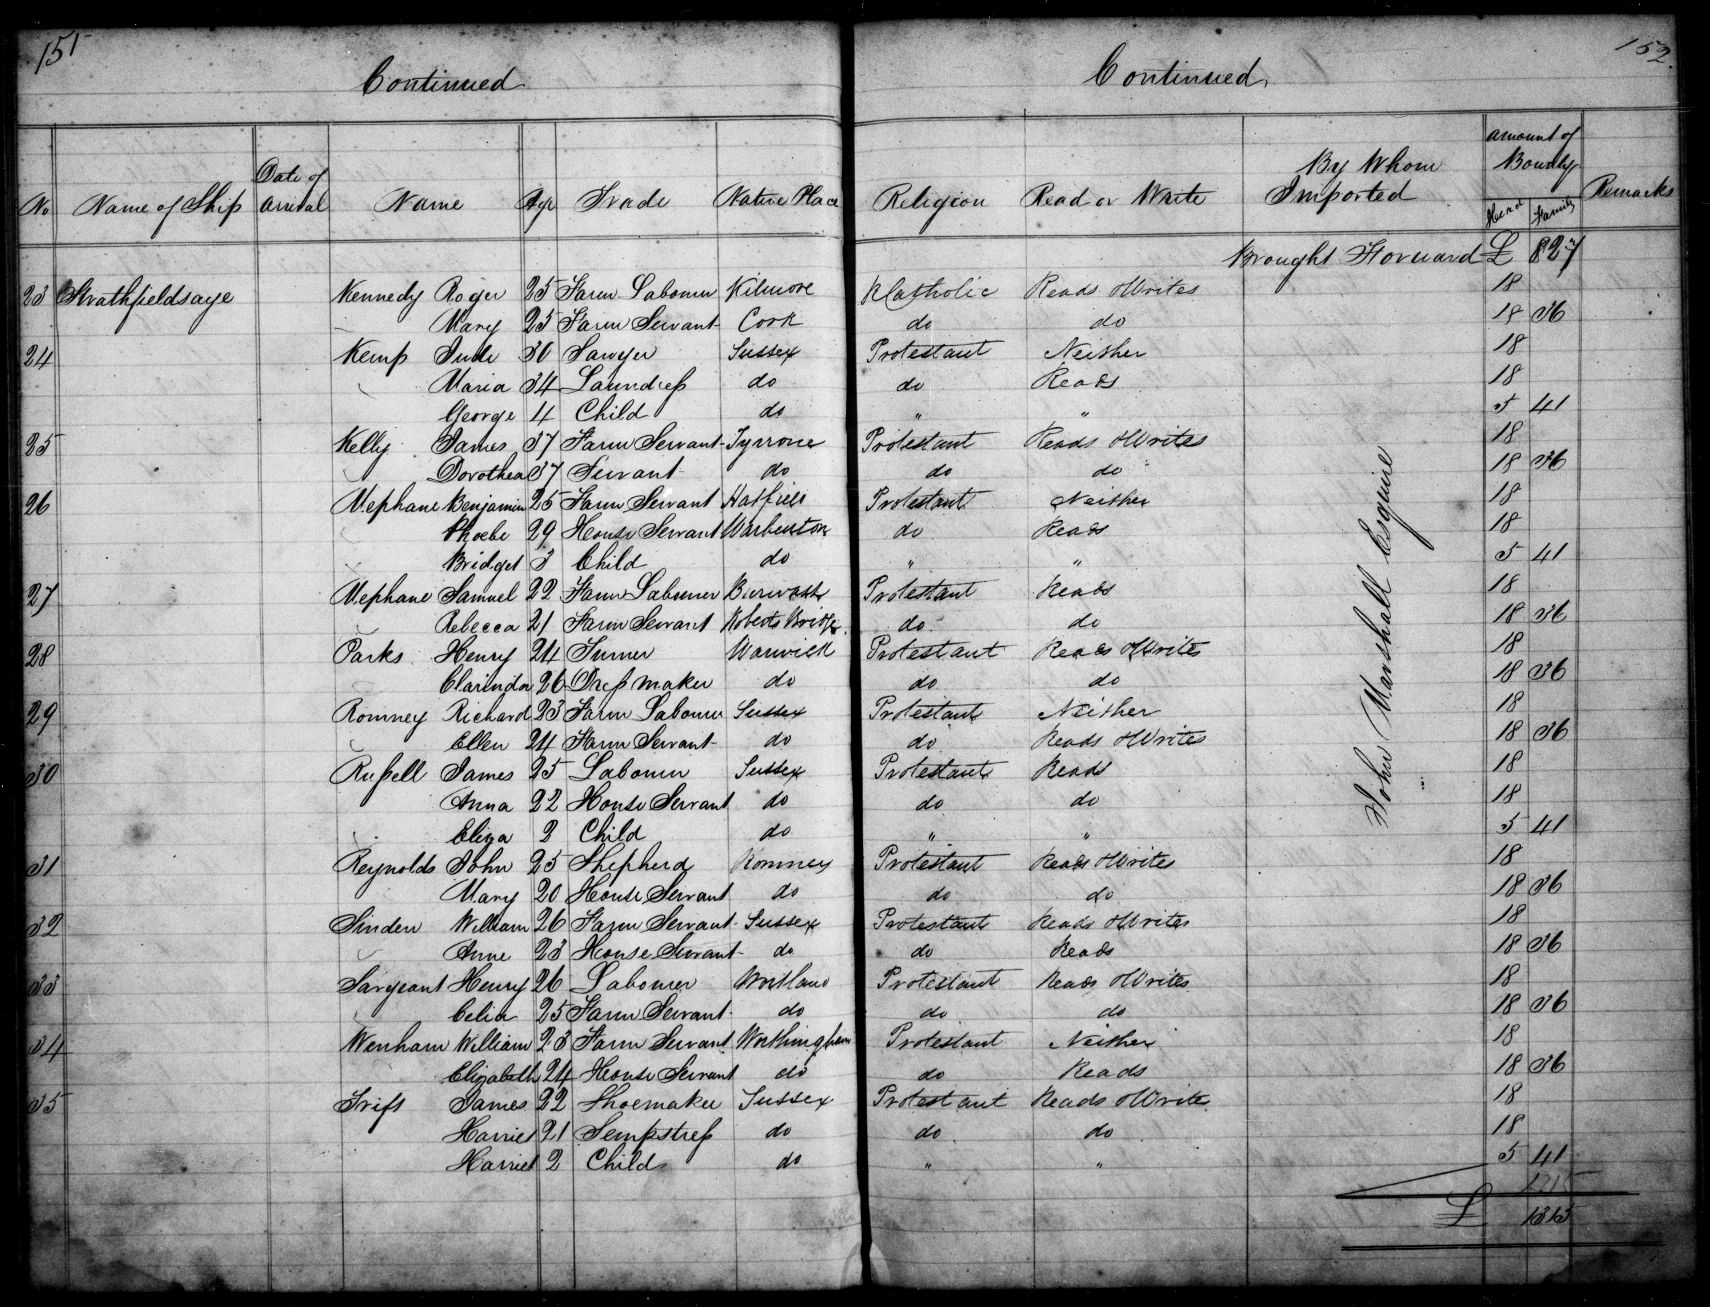 151
152
Continued
Continued
No Name of Ship Date of arrival Name Age Trade Native Place Religion Read or Write By Whom Imported amount of Bounty Head Family Remarks
Brought Forward £ 827
23 Strathfieldsaye Kennedy Roger 25 Farm Labourer Kilmore RCatholic Reads &Writes 18
Mary 25 Farm Servant Cork do do 18 36
24 Kemp Jude 30 Sawyer Sussex Protestant Neither 18
Maria 34 Laundress do do Reads 18
George 4 Child do " " 5 41
25 Kelly James 37 Farm Servant Tyrrone Protestant Reads &Writes 18
Dorothea 37 Servant do do do 18 36
26 Mephane Benjamin 25 Farm Servant Hatfield Protestant Neither 18
Phoebe 29 House Servant Warbenton do Reads 18
Bridget 3 Child do " " 5 41
27 Mephane Samuel 22 Farm Labourer Burwash Protestant Reads 18
Rebecca 21 Farm Servant Roberts Bridge do do 18 36
28 Parks Henry 24 Turner Warwick Protestant Reads &Writes 18
Clarinda 26 Dressmaker do do do 18 36
29 Romney Richard 23 Farm Labourer Sussex Protestant Neither 18
Ellen 24 Farm Servant do do Reads &Writes 18 36
30 Russell James 25 Labourer Sussex Protestant Reads 18
Anna 22 House Servant do do do 18
Eliza 2 Child do " " 5 41
31 Reynolds John 25 Shepherd Romney Protestant Reads &Writes 18
Mary 20 House Servant do do do 18 36
32 Sinden William 26 Farm Servant Sussex Protestant Reads &Writes 18
Anne 23 House Servant do do Reads 18 36
33 Sargeant Henry 26 Labourer Protestant Reads &Writes 18
Celia 25 Farm Servant do do do 18 36
34 Wenham William 23 Farm Servant Worthingham Protestant Neither 18
Elizabeth 24 House Servant do do Reads 18 36
35 Trift James 22 Shoemaker Sussex Protestant Reads &Write 18
Harriet 21 Sempstress do do do 18
Harriet 2 Child do " " 5 41
£ 1315
John Marshall Esquire